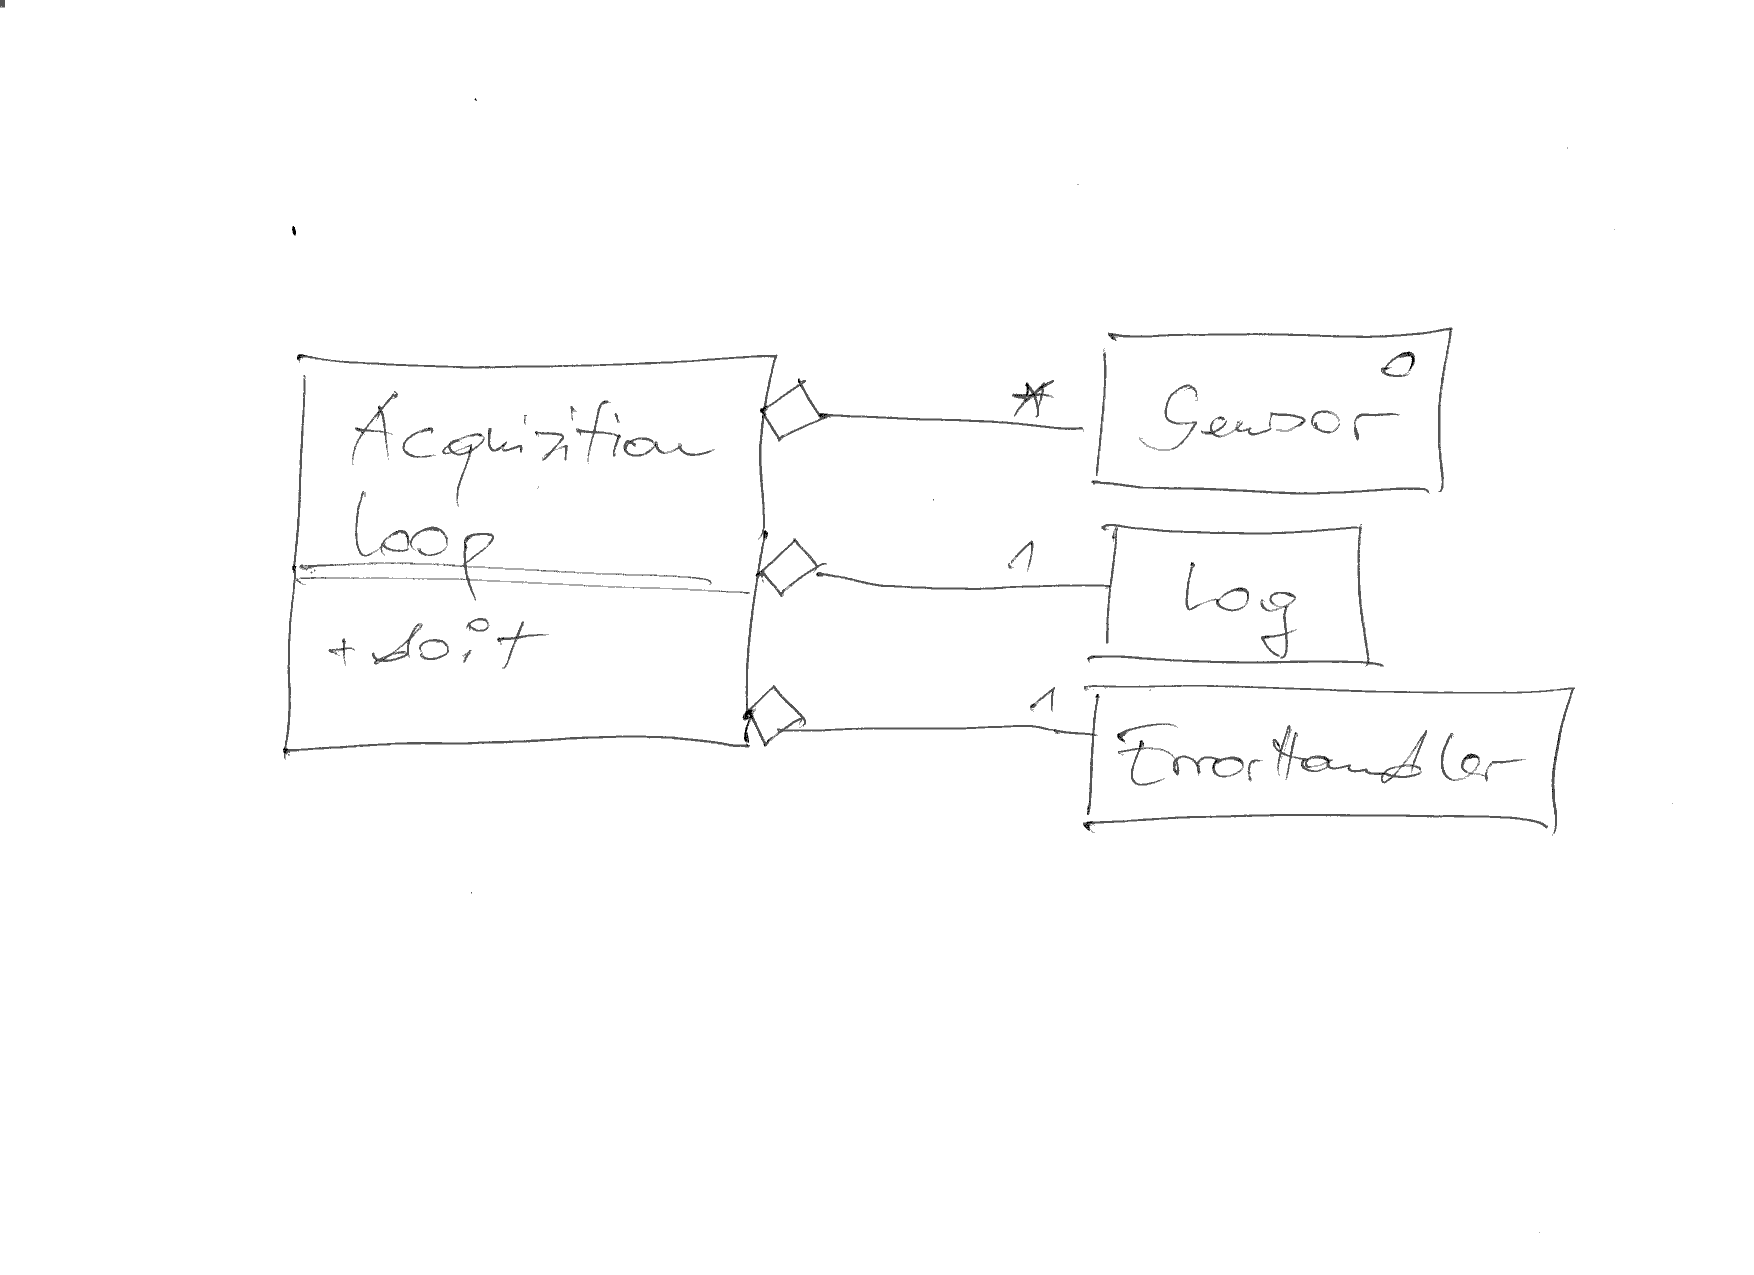 Acquisition
Loop
+ doit
*
Sensor
1
Log
1
ErrorHandler